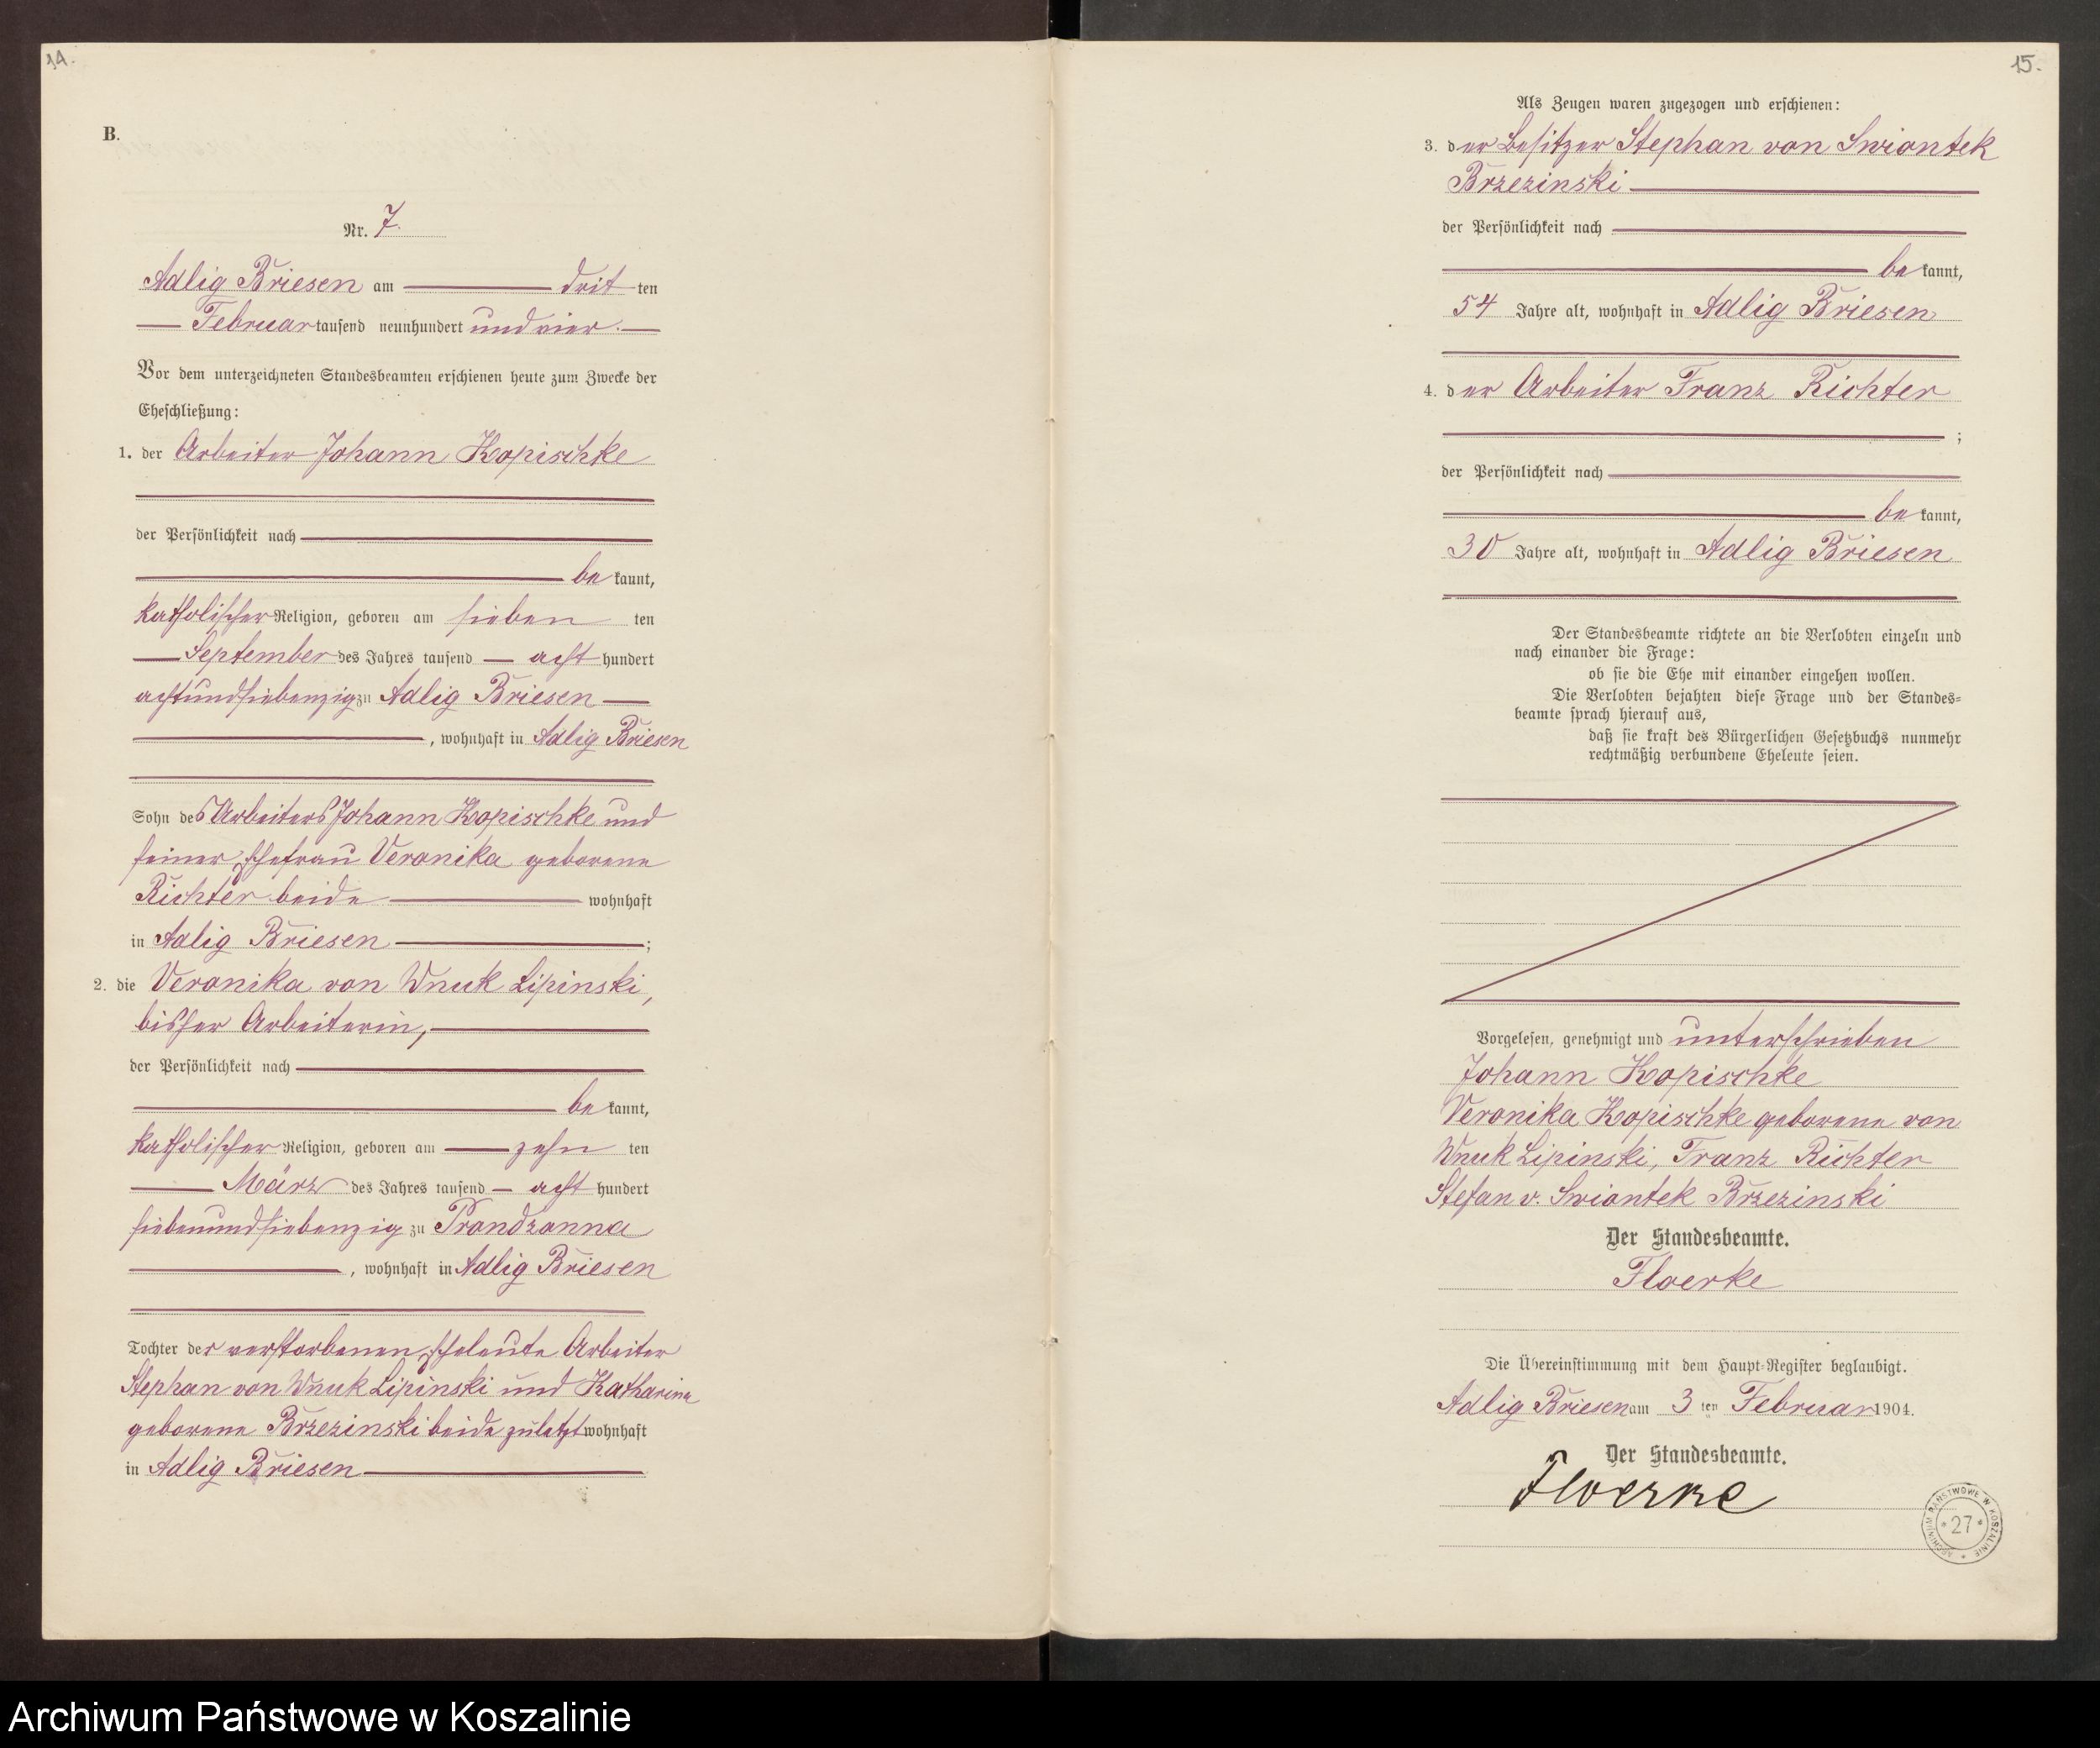 14.
B.
Nr. 7.
Adlig Briesen am dritten
Februar tausend neunhundert und vier.
Vor dem unterzeichneten Standesbeamten erschienen heute zum Zwecke der
Eheschließung:
1. der Arbeiter Johann Kopischke
der Persönlichkeit nach
bekannt,
katholischer Religion, geboren am siebenten
September des Jahres tausend acht hundert
achtundsiebenzig zu Adlig Briesen
, wohnhaft in Adlig Briesen
Sohn des Arbeiters Johann Kopischke und
seiner Ehefrau Veronika geborene
Richter beide wohnhaft
in Adlig Briesen ;
2. die Veronika von Wnuk Lipinski,
bisher Arbeiterin,
der Persönlichkeit nach
bekannt,
katholischer Religion, geboren am zehnten
März des Jahres tausend acht hundert
siebenundsiebenzig zu Prondzonna
, wohnhaft in Adlig Briesen
Tochter der verstorbenen Eheleute Arbeiter
Stephan von Wnuk Lipinski und Katharina
geborene Brzezinski beide zuletzt wohnhaft
in Adlig Briesen
15.
Als Zeugen waren zugezogen und erschienen:
3. der Besitzer Stephan von Swiontek
Brzezinski
der Persönlichkeit nach
bekannt,
54 Jahre alt, wohnhaft in Adlig Briesen
4. der Arbeiter Franz Richter
;
der Persönlichkeit nach
bekannt,
30 Jahre alt, wohnhaft in Adlig Briesen
Der Standesbeamte richtete an die Verlobten einzeln und
nach einander die Frage:
ob sie die Ehe mit einander eingehen wollen.
Die Verlobten bejahten diese Frage und der Standes=
beamte sprach hierauf aus,
daß sie kraft des Bürgerlichen Gesetzbuchs nunmehr
rechtmäßig verbundene Eheleute seien.
Vorgelesen, genehmigt und unterschrieben
Johann Kopischke
Veronika Kopischke geborene von
Wnuk Lipinski, Franz Richter
Stefan v. Swiontek Brzezinski
Der Standesbeamte.
Floerke
Die Übereinstimmung mit dem Haupt=Register beglaubigt.
Adlig Briesen am 3 ten Februar 1904.
Der Standesbeamte.
Floerke
ARCHIWUM PAŃSTWOWE W KOSZALINIE
* 27 *
Archiwum Państwowe w Koszalinie